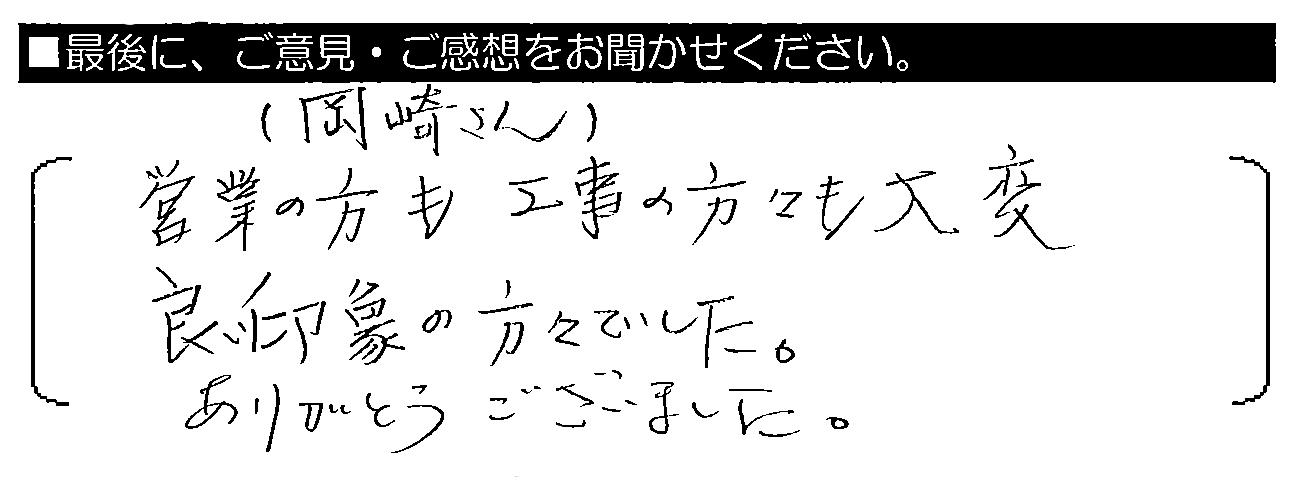 ■最後に、ご意見・ご感想をお聞かせください。
(岡崎さん)
営業の方も工事の方々も大変
良い印象の方々でした。
ありがとうございました。